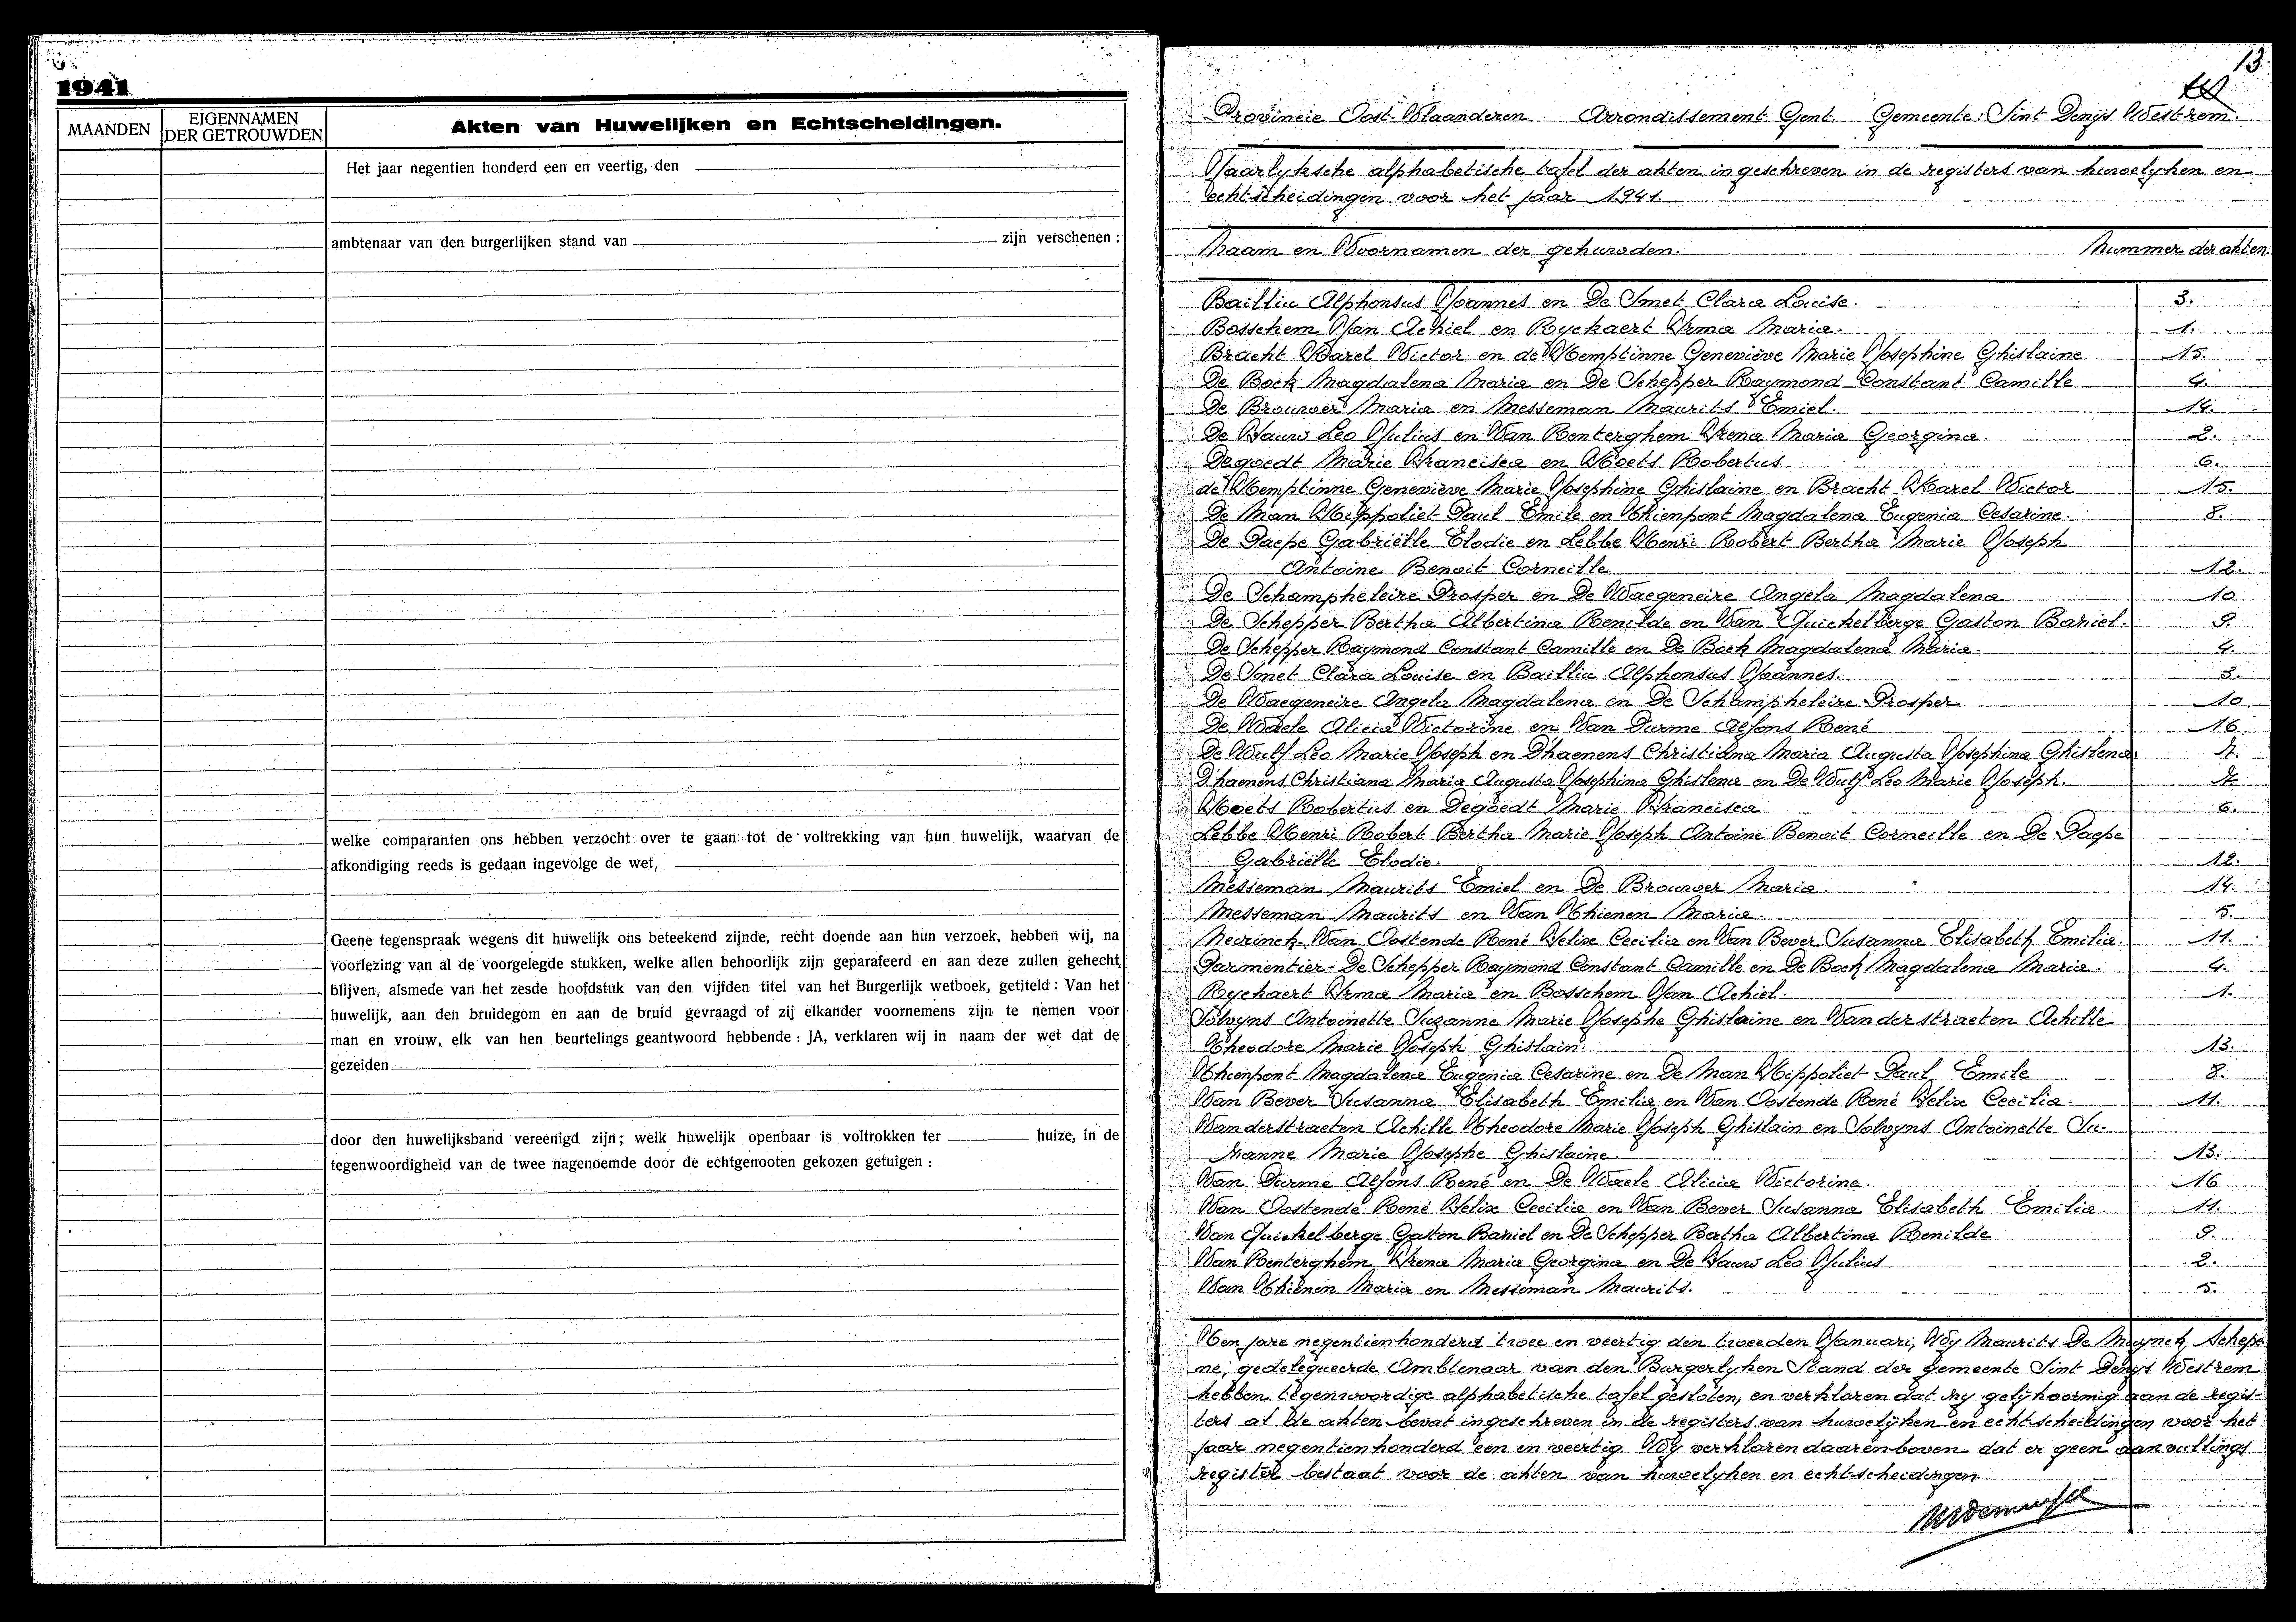 1941
MAANDEN
EIGENNAMEN
DER GETROUWDEN
Akten van Huwelijken en Echtscheidingen.
Het jaar negentien honderd een en veertig, den
ambtenaar van den burgerlijken stand van zijn verschenen :
welke comparanten ons hebben verzocht over te gaan tot de voltrekking van hun huwelijk, waarvan de
afkondiging reeds is gedaan ingevolge de wet,
Geene tegenspraak wegens dit huwelijk ons beteekend zijnde, recht doende aan hun verzoek, hebben wij, na
voorlezing van al de voorgelegde stukken, welke allen behoorlijk zijn geparafeerd en aan deze zullen gehecht
blijven, alsmede van het zesde hoofdstuk van den vijfden titel van het Burgerlijk wetboek, getiteld : Van het
huwelijk, aan den bruidegom en aan de bruid gevraagd of zij elkander voornemens zijn te nemen voor
man en vrouw, elk van hen beurtelings geantwoord hebbende : JA, verklaren wij in naam der wet dat de
gezeiden
door den huwelijksband vereenigd zijn; welk huwelijk openbaar is voltrokken ter huize, in de
tegenwoordigheid van de twee nagenoemde door de echtgenooten gekozen getuigen :
13.
Provincie Oost-Vlaanderen Arrondissement Gent. Gemeente: Sint Denijs Westrem.
Jaarlyksche alphabetische tafel der akten ingeschreven in de registers van huwelyken en
echtscheidingen voor het jaar 1941.
Naam en Voornamen der gehuwden. Nummer der akten.
Bailliu Alphonsus Joannes en De Smet Clara Louise. 3.
Bosschem Jan Achiel en Ryckaert Irma Maria. 1.
Bracht Karel Victor en de Hemptinne Geneviève Marie Josephine Ghislaine 15.
De Bock Magdalena Maria en De Schepper Raymond Constant Camille 4.
De Brouwer Maria en Messeman Maurits Emiel. 14.
De Fauw Leo Julius en Van Renterghem Irena Maria Georgina. 2.
Degoedt Marie Francisca en Hoets Robertus 6.
de Hemptinne Geneviève Marie Josephine Ghislaine en Bracht Karel Victor 15.
De Man Hippoliet Paul Emile en Thienpont Magdalena Eugenia Cesarine. 8.
De Paepe Gabriëlle Elodie en Lebbe Henri Robert Bertha Marie Joseph
Antoine Benoit Corneille 12.
De Schampheleire Prosper en De Waegeneire Angela Magdalena 10
De Schepper Bertha Albertina Renilde en Van Quickelberge Gaston Bariel. 9.
De Schepper Raymond Constant Camille en De Bock Magdalena Maria. 4.
De Smet Clara Louise en Bailliu Alphonsus Joannes. 3.
De Waegeneire Angela Magdalena en De Schampheleire Prosper 10.
De Waele Alicia Victorine en Van Durme Alfons René 16
De Wulf Leo Marie Joseph en D'haenens Christiana Maria Augusta Josephina Ghislena
D'haenens Christiana Maria Augusta Josephina Ghislena en De Wulf Leo Marie Joseph.
Hoets Robertus en Degoedt Marie Francisca 6.
Lebbe Henri Robert Bertha Marie Joseph Antoine Benoit Corneille en De Paepe
Gabriëlle Elodie. 12.
Messeman Maurits Emiel en De Brouwer Maria 14.
Messeman Maurits en Van Thienen Maria. 5.
Neirinck-Van Oostende René Felix Cecilia en Van Bever Susanna Elisabeth Emilia. 11.
Parmentier-De Schepper Raymond Constant Camille en De Bock Magdalena Maria. 4.
Ryckaert Irma Maria en Bosschem Jan Achiel. 1.
Solvyns Antoinette Suzanne Marie Josephe Ghislaine en Vanderstraeten Achille
Theodore Marie Joseph Ghislain. 13.
Thienpont Magdalena Eugenia Cesarine en De Man Hippoliet Paul Emile 8.
Van Bever Susanna Elisabeth Emilia en Van Oostende René Felix Cecilia. 11.
Vanderstraeten Achille Theodore Marie Joseph Ghislain en Solvyns Antoinette Su-
zanne Marie Josephe Ghislaine 13.
Van Durme Alfons René en De Waele Alicia Victorine. 16
Van Oostende René Felix Cecilia en Van Bever Susanna Elisabeth Emilia. 11.
Van Quickelberge Gaston Bariel en De Schepper Bertha Albertina Renilde 9.
Van Renterghem Irena Maria Georgina en De Fauw Leo Julius 2.
Van Thienen Maria en Messeman Maurits. 5.
Ten jare negentienhonderd twee en veertig den tweeden Januari, Wy Maurits De Muynck, Schepe
ne, gedelegueerde Ambtenaar van den Burgerlyken Stand der gemeente Sint Denys Westrem
hebben tegenwoordige alphabetische tafel gesloten, en verklaren dat zy gelijkvormig aan de regis-
ters al de akten bevat ingeschreven in de registers van huwelijken en echtscheidingen voor het
jaar negentienhonderd een en veertig. Wy verklaren daarenboven dat er geen aanvullings
register bestaat voor de akten van huwelyken en echtscheidingen